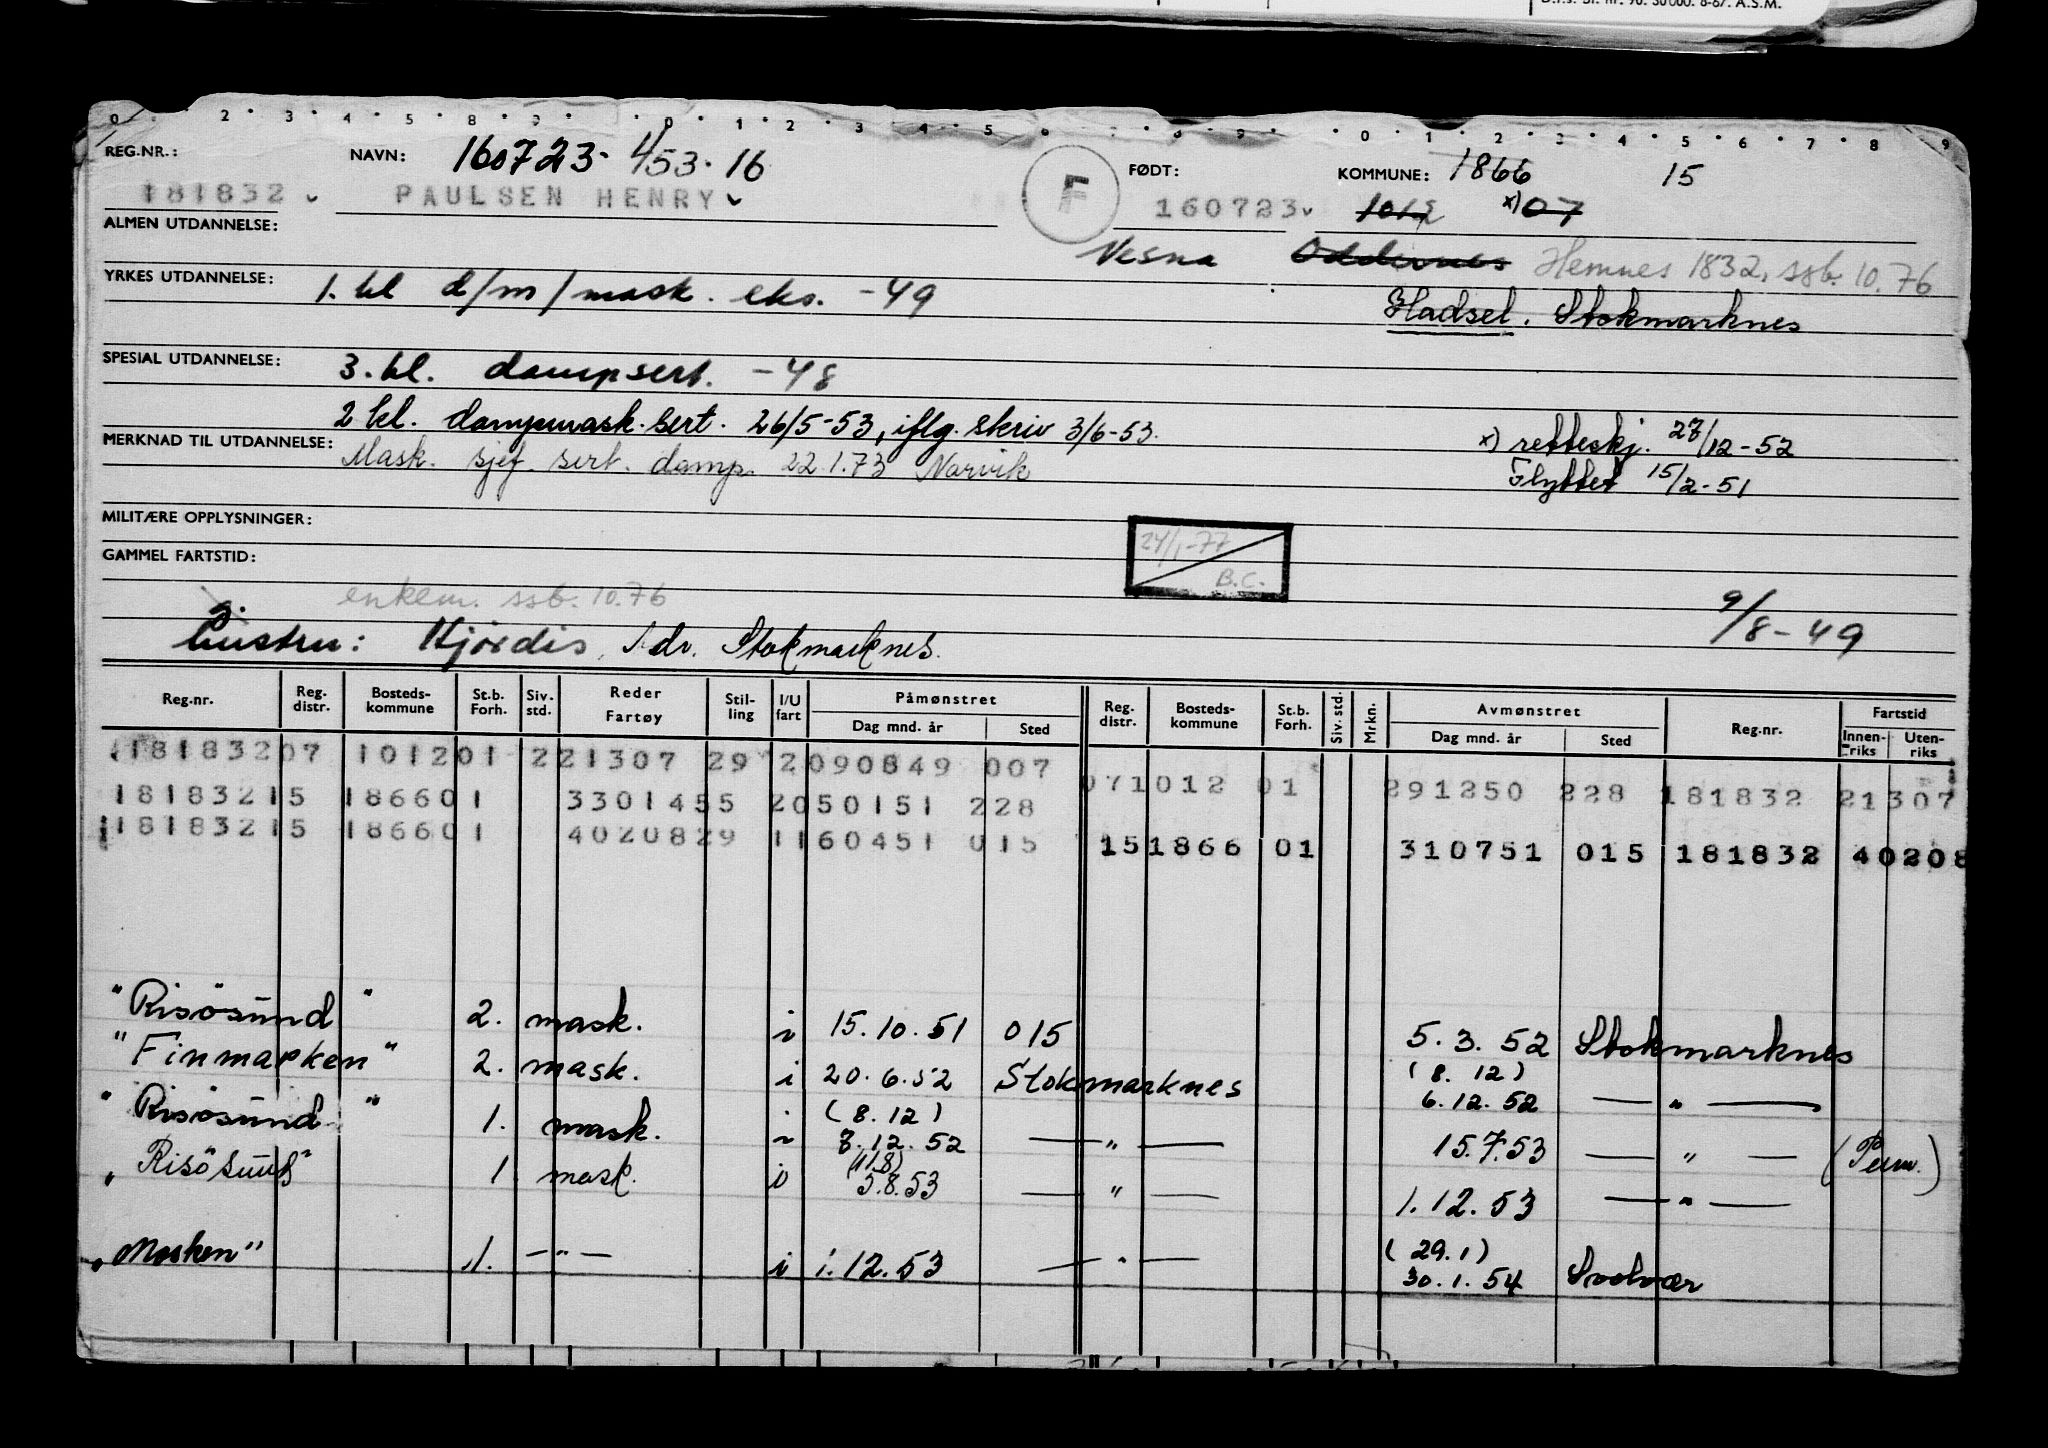 D.f.s. Bl. nr. 90. 30000. 8-67. A.S.M.
0 2 3 4 5 8 9 0 1 2 3 4 5 6 7 8 9 0 1 2 3 4 5 6 7 8 9
REG.NR.: NAVN: 160723-453.16 FØDT: KOMMUNE: 1866 15
181832 PAULSEN HENRY F 160723 1012 x) 07
ALMEN UTDANNELSE:
Nesna Oddernes Hemnes 1832, ssb. 10.76
YRKES UTDANNELSE: 1. kl d/m/mask. eks. -49
Hadsel. Stokmarknes
SPESIAL UTDANNELSE: 3. kl. dampsert. -48
2 kl. dampmask.sert. 26/5-53, iflg. skriv 3/6-53.
x) retteskj. 27/12-52
MERKNAD TIL UTDANNELSE: Mask. sjef sert. damp. 22.1.73 Narvik
Flyttet 15/2-51
MILITÆRE OPPLYSNINGER:
24/1-77
B.C.
GAMMEL FARTSTID:
enkem. ssb. 10.76
9/8-49
g.
Hustru: Hjørdis, Adr. Stokmarknes.
Reg.nr. Reg. distr. Bosteds-kommune St.b. Forh. Siv. std. Reder Fartøy Stil-ling I/U fart Påmønstret Dag mnd. år Sted Reg. distr. Bosteds-kommune St.b. Forh. Siv. std. Mrkn. Avmønstret Dag mnd. år Sted Reg.nr. Fartstid Innen-riks Uten-riks
18183207 101201 221307 29 2090849 007 071012 01 291250 228 181832 21307
18183215 186601 3301455 2050151 228
18183215 186601 4020829 1160451 015 151866 01 310751 015 181832 40208
"Risösund" 2. mask. i 15.10.51 015 5.3.52 Stokmarknes
"Finmarken" 2. mask. i 20.6.52 Stokmarknes (8. 12) 6.12.52 — " —
"Risösund" 1. mask. i (8.12) 7.12.52 — " — 15.7.53 — " — (Perm.)
"Risösund" 1 mask. i (11.8) 5.8.53 — " — 1.12.53 — " —
"Mosken" 1. — " — i 1.12.53 — " — (29.1) 30.1.54 Svolvær